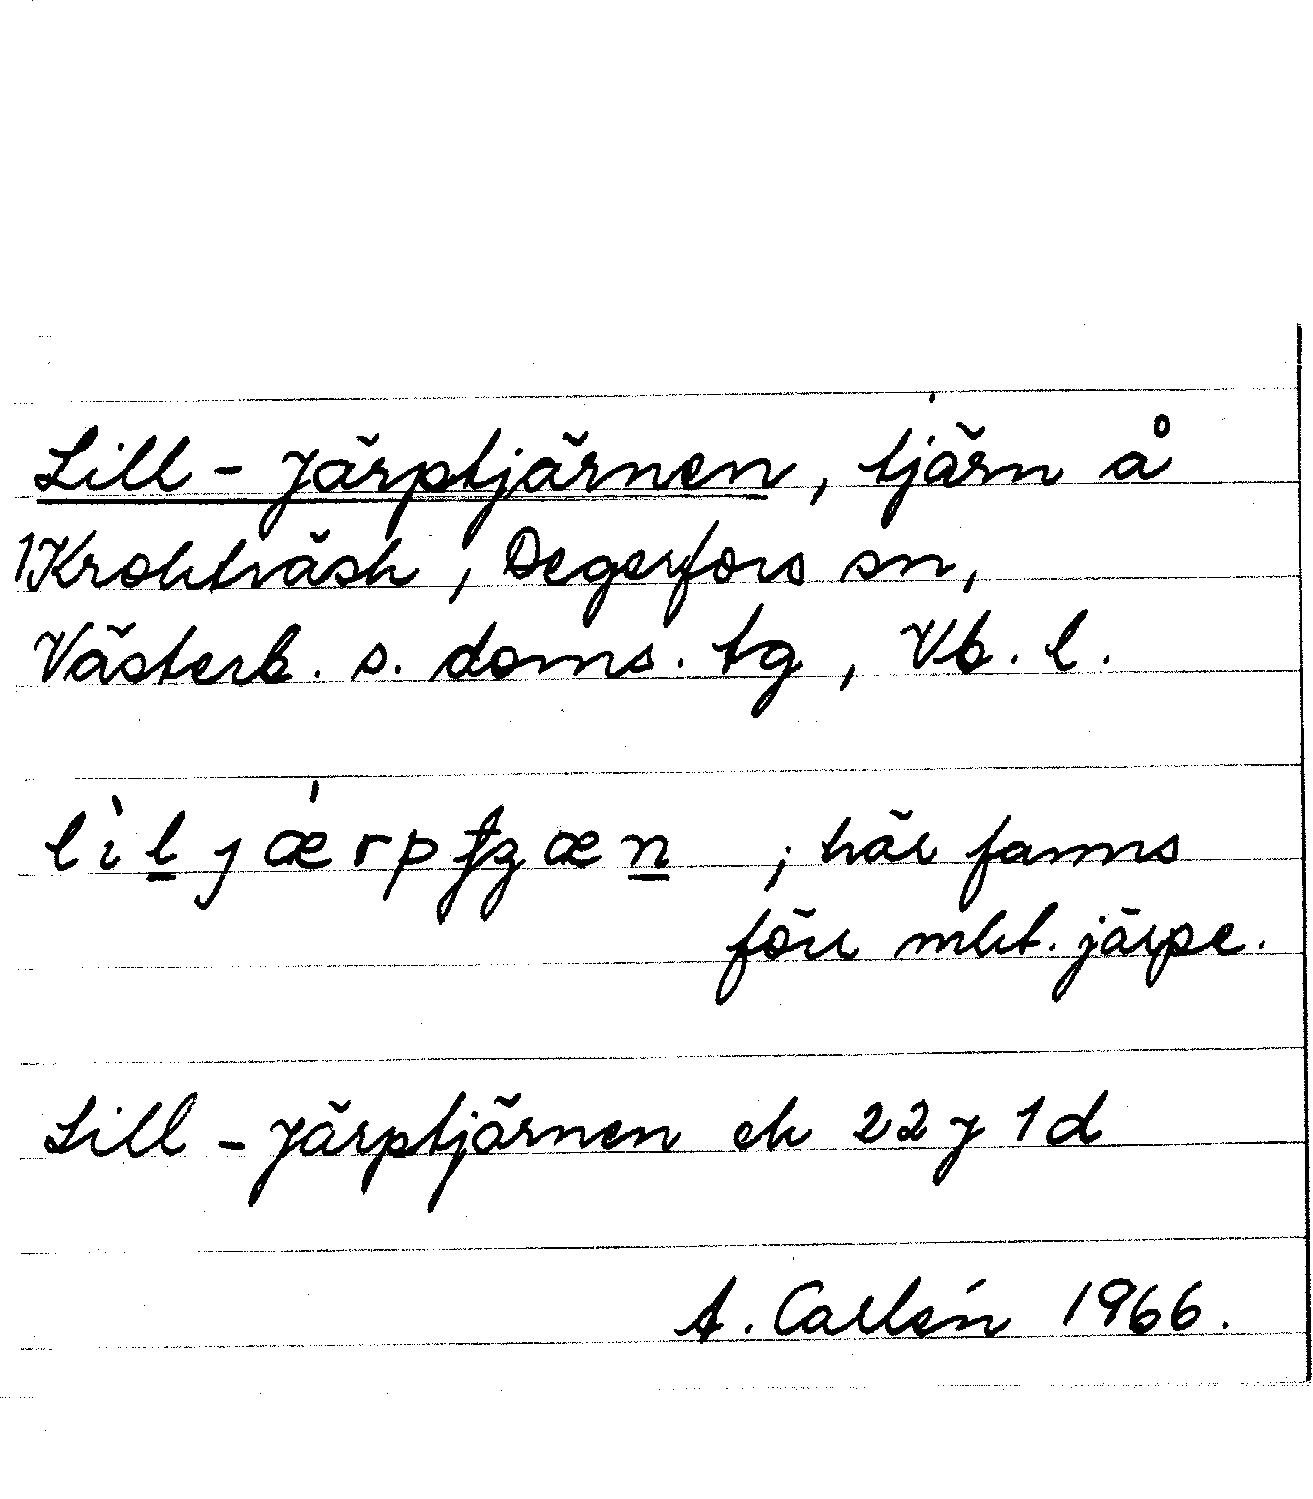 Lill-Järptjärnen, tjärn å
1Kroktväsk, Degerfors sn,
Västerb. s. doms. tg, Vb. l.
; här fanns
förr mkt. järpe.
Lill-Järptjärnen ek 22 J 1d
A. Carlén 1966.